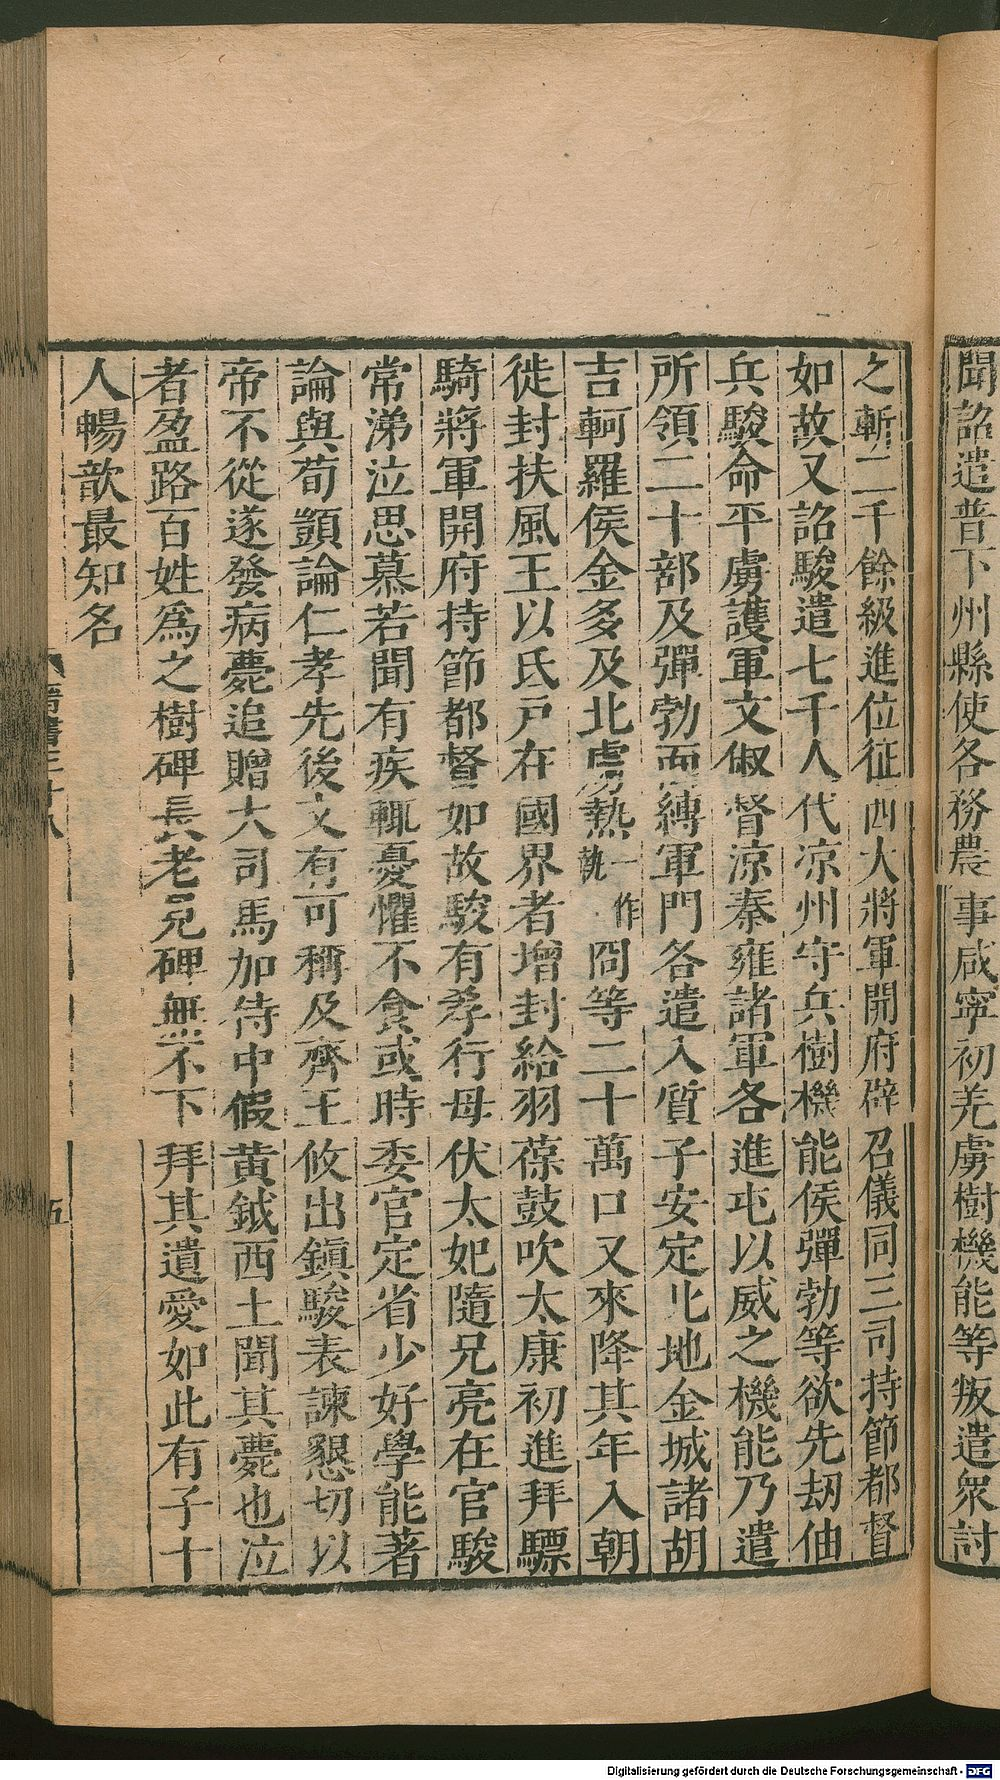 聞詔遣普下州縣使各務農事咸寧初羌虜樹機能等叛遣衆討
之斬三千餘級進位征西大將軍開府辟召儀同三司持節都督
如故又詔駿遣七千人代凉州守兵樹機能侯彈勃等欲先刼佃
兵駿命平虜護軍文俶督凉秦雍諸軍各進屯以威之機能乃遣
所領二十部及彈勃面縛軍門各遣入質子安定北地金城諸胡
吉軻羅侯金多及北虜熱一作執冏等二十萬口又來降其年入朝
徙封扶風王以氐戸在國界者增封給羽葆鼓吹太康初進拜驃
騎將軍開府持節都督如故駿有孝行母伏太妃隨兄亮在官駿
常涕泣思慕若聞有疾輒憂懼不食或時委官定省少好學能著
論與荀顗論仁孝先後文有可稱及齊王攸出鎭駿表諫懇切以
帝不從遂發病薨追贈大司馬加侍中假黄鉞西土聞其薨也泣
者盈路百姓爲之樹碑長老見碑無不下拜其遺愛如此有子十
人暢歆最知名
晋書三十八
五
Digitalisierung gefördert durch die Deutsche Forschungsgemeinschaft - DFG